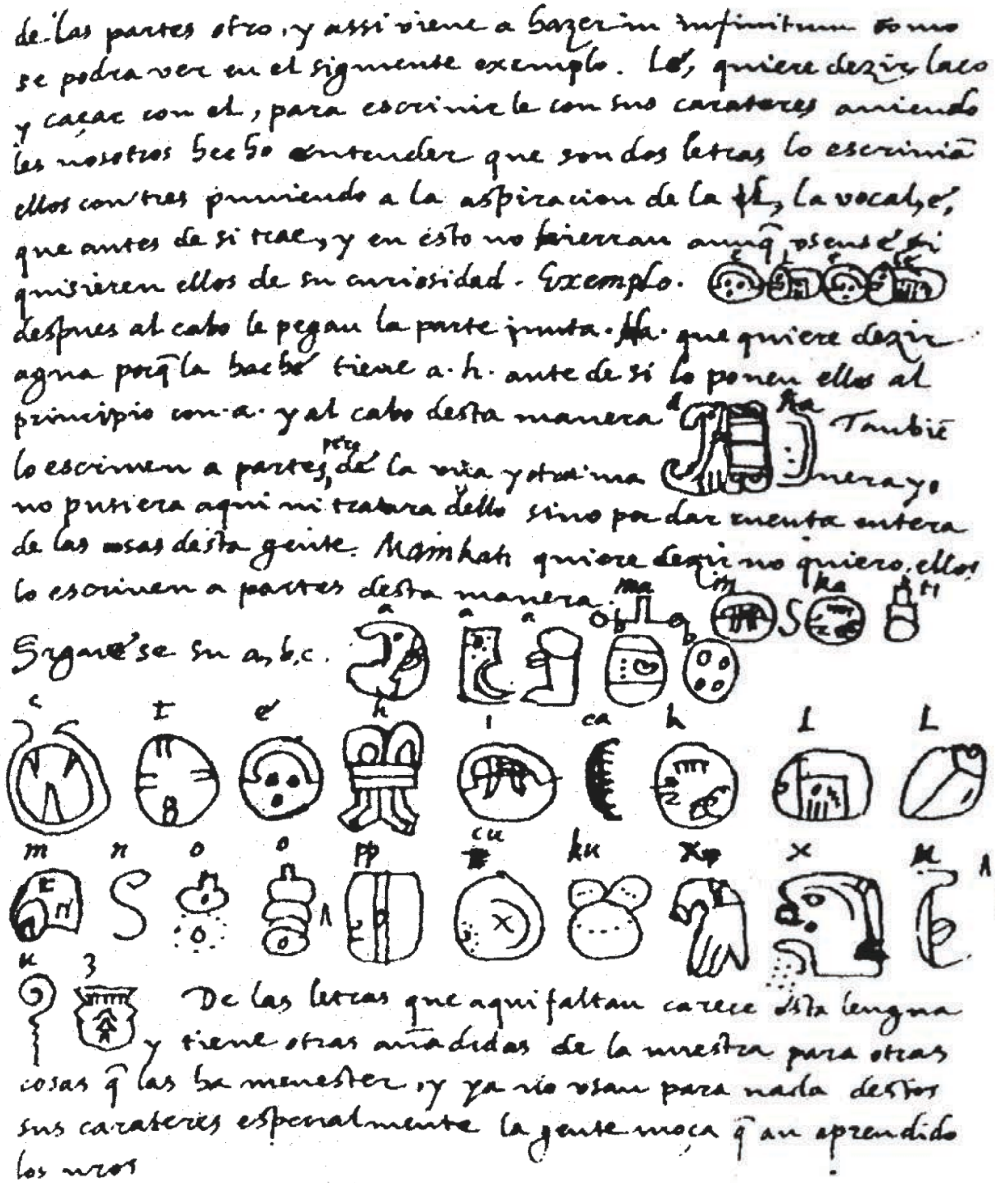 de las partes otro, y assi viene a hazer in infinitum como
se podra ver en el siguiente exemplo. Lé, quiere dezir laço
y caçar con el, para escrivirle con sus carateres aviendo
les nosotros hecho entender que son dos letras lo escrivian
ellos con tres puniendo a la aspiracion de la l, la vocal, é,
que antes de si trae, y en esto no hierran aunq̄ usense si
quisieren ellos de su curiosidad. Exemplo. e L e Lé
despues al cabo le pegan la parte junta. Ha. que quiere dezir
agua porq̄ la hache tiene a. h. ante de si lo ponen ellos al
principio con a. y al cabo desta manera a ha Tambiē
lo escriven a partes, pero de la una y otra ma nera yo
no pusiera aqui ni tratara dello sino por dar cuenta entera
de las cosas desta gente. Mainkati quiere dezir no quiero, ellos
lo escriven a partes desta manera. ma in ka ti
Siguese su a, b, c. a a a b b
c t é h i ca k l L
m n o o pp cu ku x x u
u z De las letras que aqui faltan carece esta lengua
y tiene otras añadidas de la nuestra para otras
cosas q̄ las ha menester, y ya no usan para nada destos
sus carateres especialmente la gente moça q̄ an aprendido
los nros